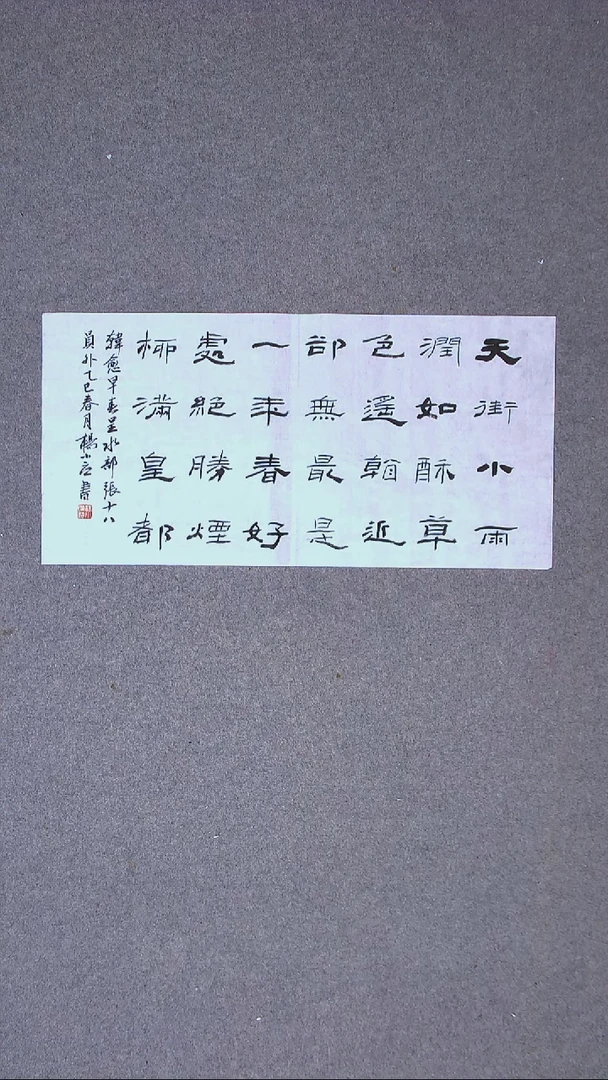 天街小雨
潤如酥草
色遙看近
卻無最是
一年春好
處絕勝煙
柳滿皇都
韓愈早春呈水部張十八
員外乙巳春月楊小書